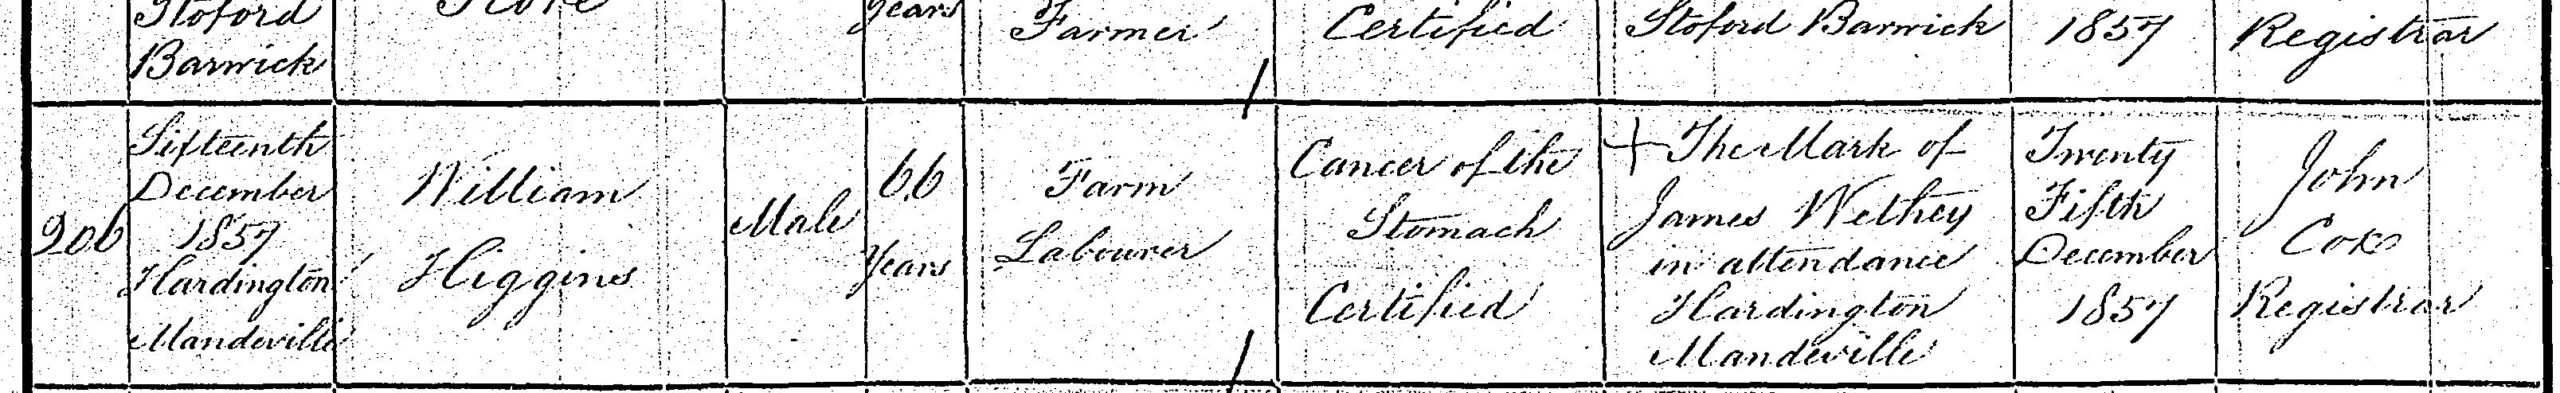 Stoford
Barwick
years
Farmer
Certified
Stoford Barwick
1857
Registrar
206
Fifteenth
December
1857
Hardington
Mandeville
William
Higgins
Male
66
Years
Farm
Labourer
Cancer of the
Stomach
Certified
+ The Mark of
James Wethey
in attendance
Hardington
Mandeville
Twenty
Fifth
December
1857
John
Cox
Registrar